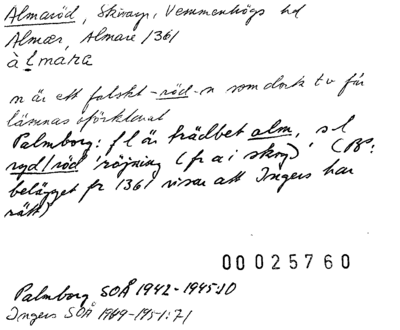 Almaröd, Skivarp, Vemmenhögs hd
Almær, Almare 1361
àlmara
n är ett falskt -röd-n som dock tv får
lämnas oförklarat
Palmborg: fl är trädbet alm, sl
ryd/röd 'röjning (fr a i skog)' (
belägget fr 1361 visar att Ingers har
rätt)
00025760
Palmborg SOÅ 1942-1945:10
Ingers SOÅ 1949-1951:71